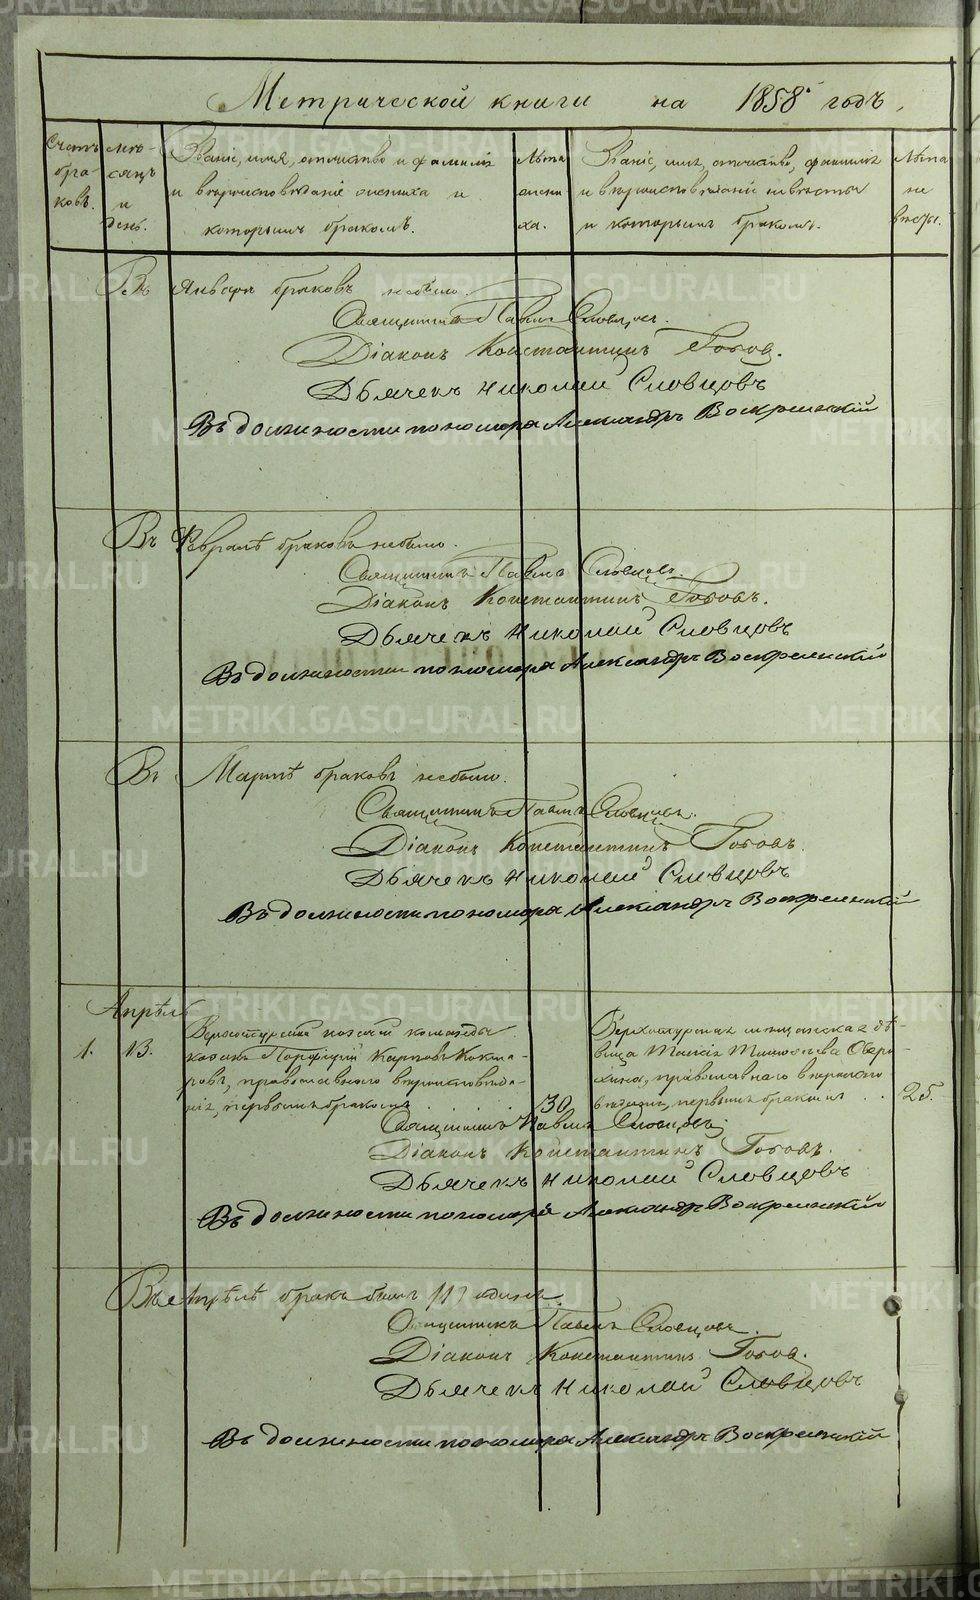 Метрической книги на 1858й годъ,
Счетъ браковъ.
Мѣсяцъ и день.
Званіе, имя, отчество и фамилія
и вѣроисповѣданіе жениха и
которымъ бракомъ.
Лѣта жениха.
Званіе, имя, отчество, фамилія
и вѣроисповѣданіе невѣсты
и которымъ бракомъ.
Лѣта невѣсты.
Въ Январѣ браковъ небыло.
Священникъ Павелъ Словцовъ.
Діаконъ Константинъ Топов.
Дьячекъ Николай Словцовъ
Въ должности пономаря Александръ Воскресенскій
Въ Февралѣ браковъ небыло.
Священникъ Павелъ Словцовъ
Діаконъ Константинъ Топовъ.
Дьячекъ Николай Словцовъ
Въ должности пономаря Александръ Воскресенскій
Въ Мартѣ браковъ небыло.
Священникъ Павелъ Словцовъ.
Діаконъ Константинъ Топовъ.
Дьячекъ Николай Словцовъ
Въ должности пономаря Александръ Воскресенскій
Апрѣль
1. 13.
Верхотурской казачей команды
казакъ Порфирій Карповъ
православнаго вѣроисповѣда-
нія, первымъ бракомъ 30.
Верхотурская мѣщанская дѣ-
вица
православнаго вѣроиспо
вѣданія, первымъ бракомъ 25.
Священникъ Павелъ Словцовъ
Діаконъ Константинъ Топовъ.
Дьячекъ Николай Словцовъ
Въ должности пономаря Александръ Воскресенскій
Въ Апрѣлѣ бракъ былъ /1/ одинъ.
Священникъ Павелъ Словцовъ.
Діаконъ Константинъ Топов.
Дьячекъ Николай Словцовъ
Въ должности пономаря Александръ Воскресенскій
METRIKI.GASO-URAL.RU